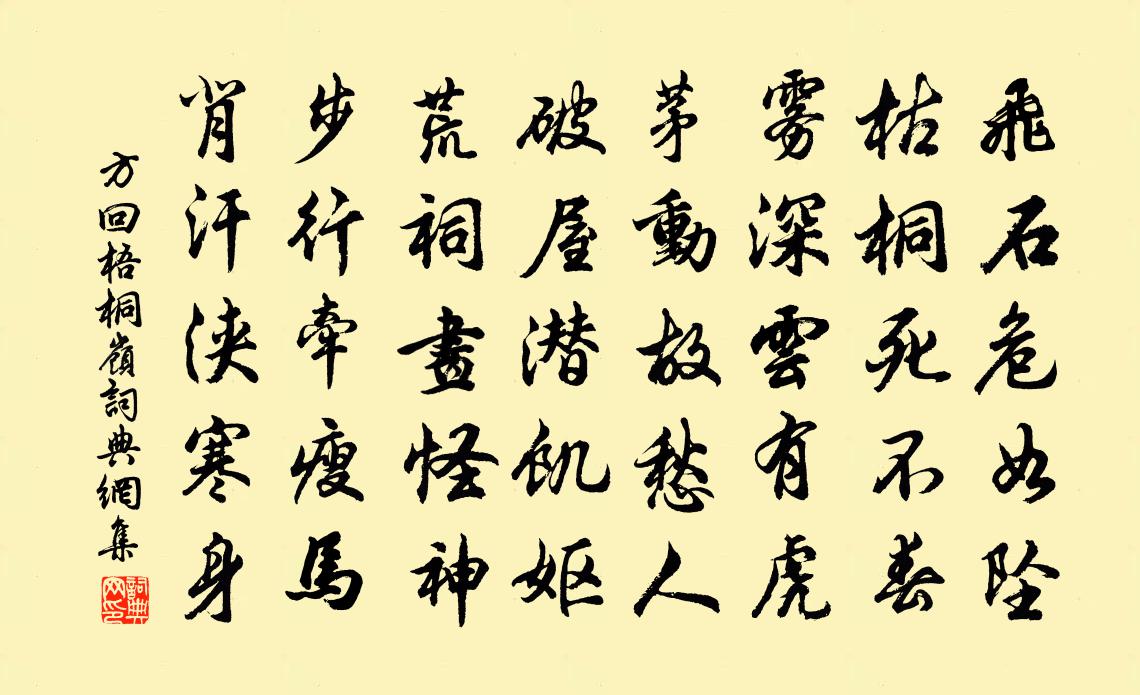 飛石危如墜
枯桐死不春
雾深雲有虎
茅動故愁人
破屋潜飢妪
荒祠畫怪神
步行牽瘦馬
背汗浹寒身
方回梧桐嶺詞典網集
詞典網印